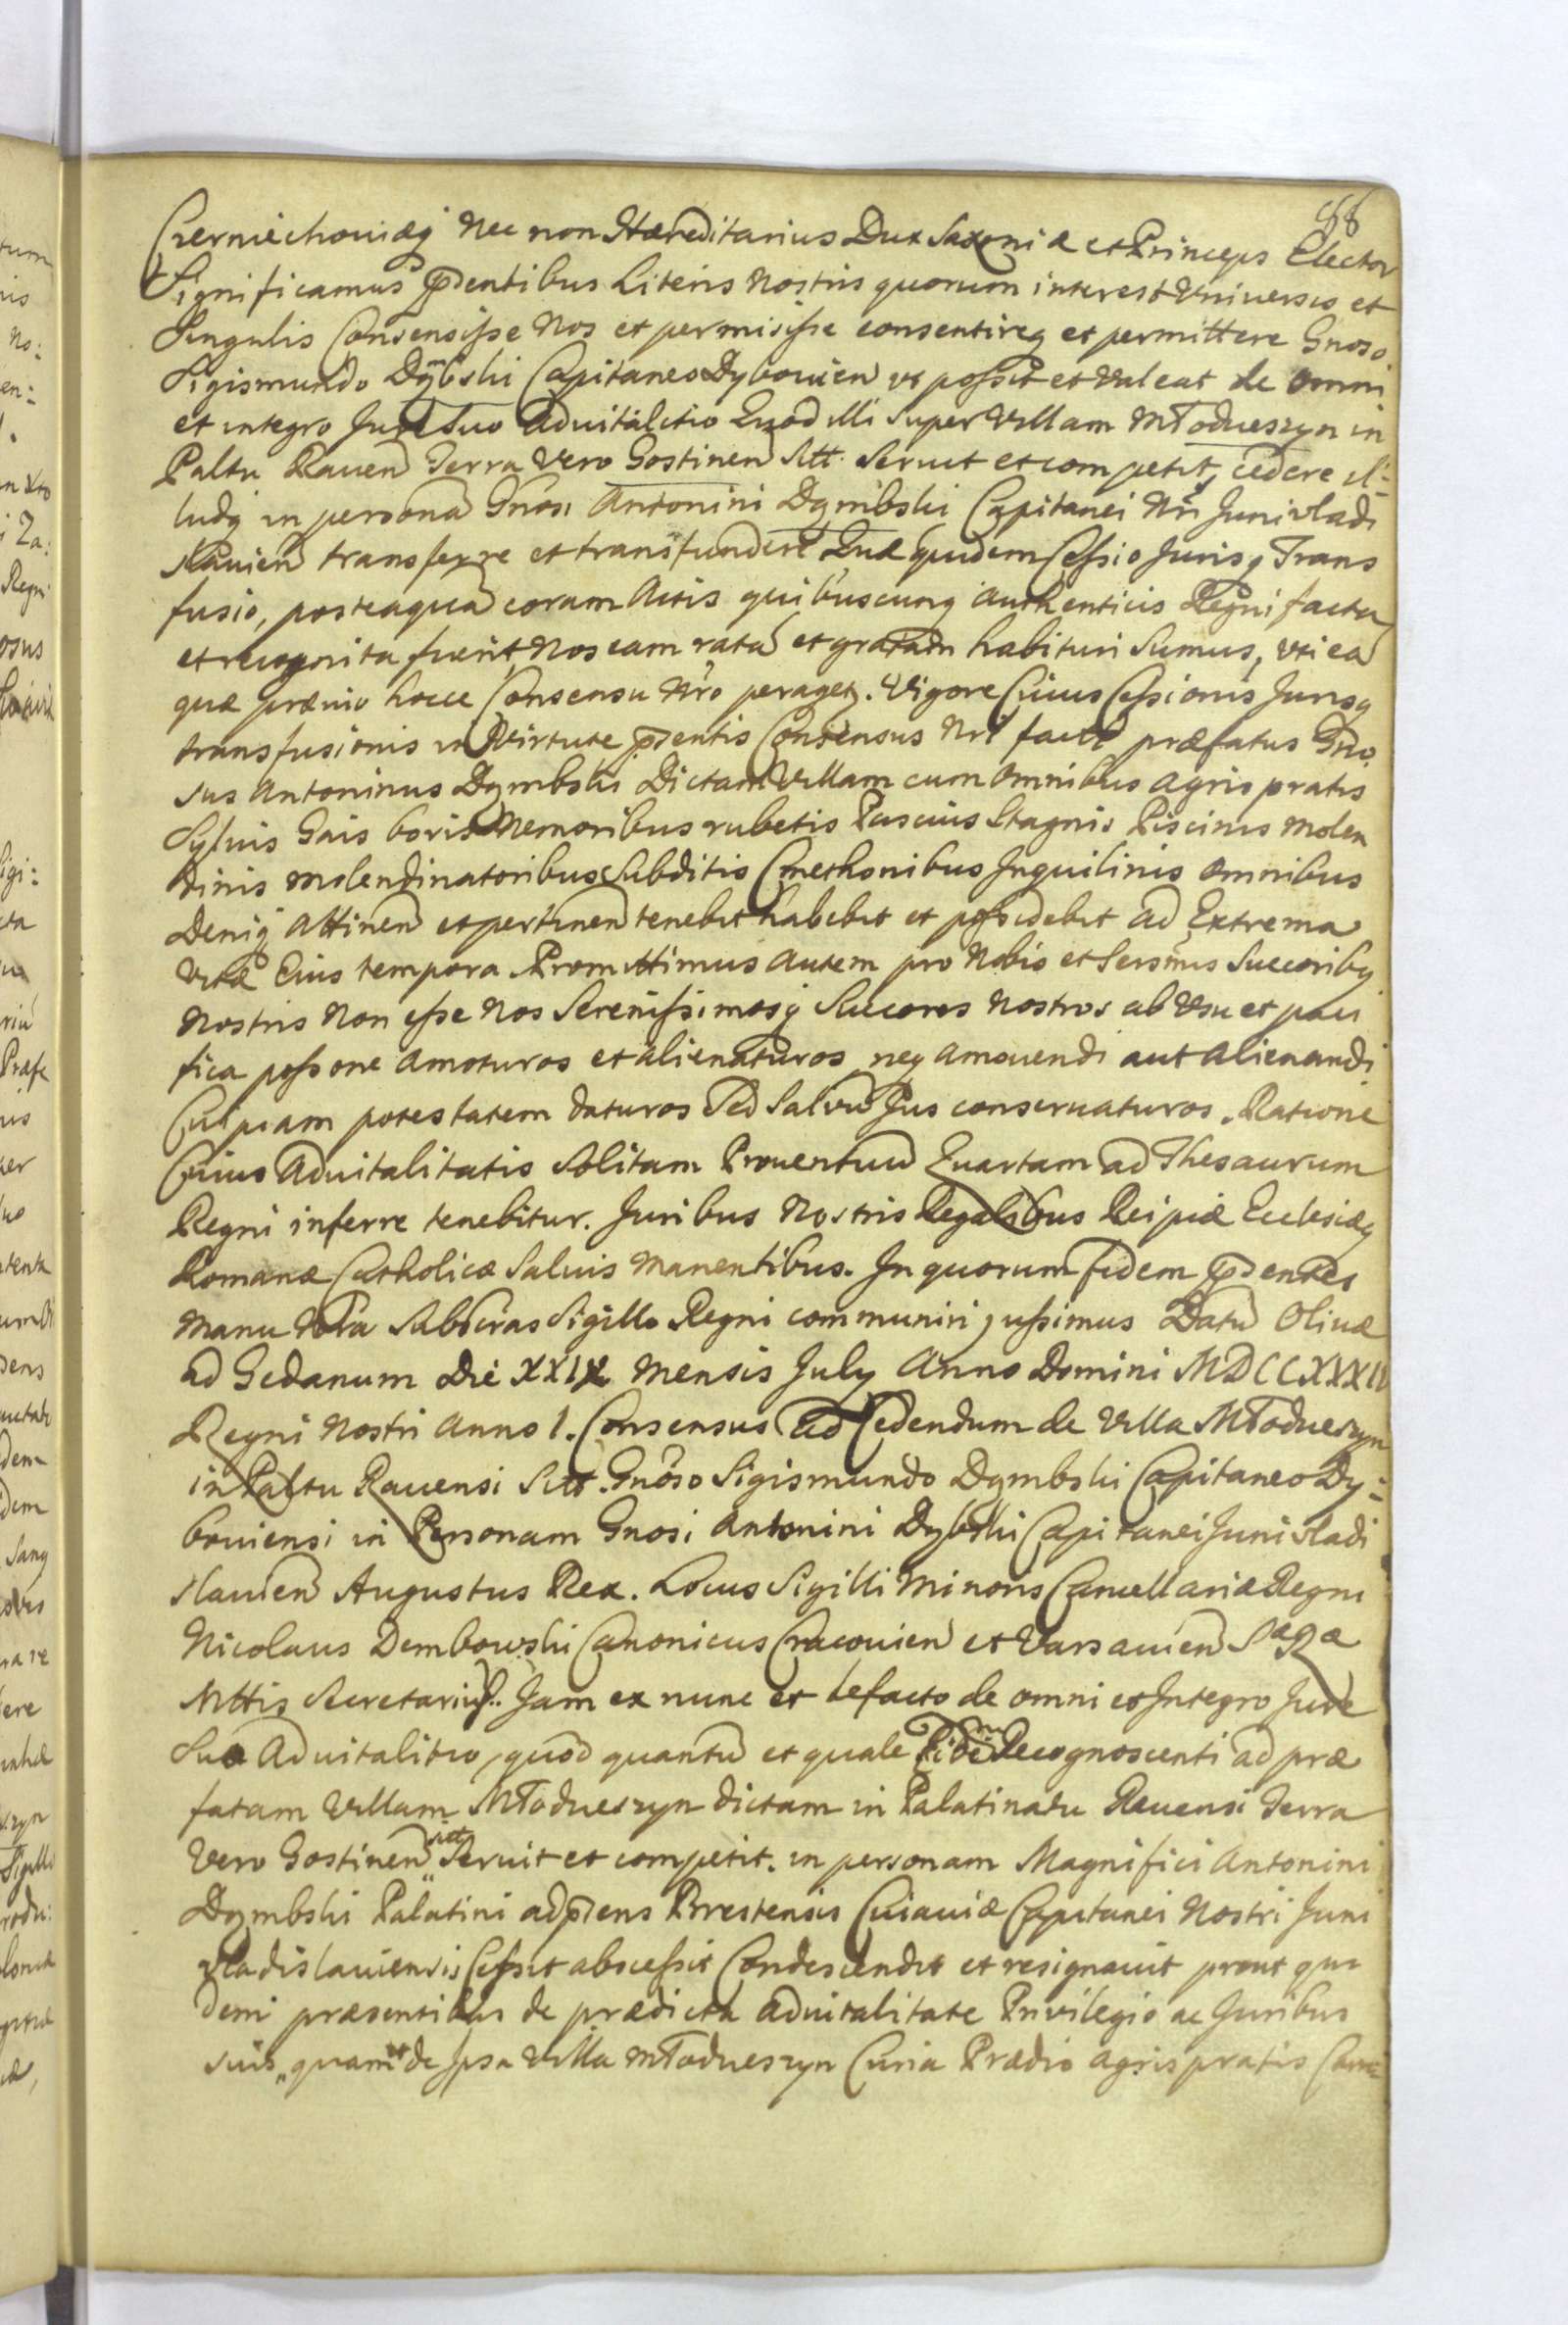 88
Czerniechoviæq Nec non Hæreditarius Dux Saxoniæ et Princeps Elector
Significamus pñtibus Literis Nostris quorum interest Vniversis et
Singulis Consensisse Nos et permisisse consentireq et permittere Gnoso
Sigismundo Dymbski Capitaneo Dyboviens vt possit et Valeat de omni
et integro Jure Suo Advitalitio Quod illi Super Villam Młodueszyn in
Paltu Raven Terra Vero Gostinen Sitt. Servit et competit, cedere il-
ludq in persona Gnosi Antonini Dymbski Capitanei Nri Junivladi
slavien transferre et transfundere Quæ quidem Cessio Jurisq Trans
fusio, posteaqua coram Actis quibuscunq Authenticis Regni facta
et recognita fuerit, Nos eam rata et gratam habituri Sumus, vti ea
quæ prævio hocce Consensu Nro peraget. Vigore Cuius Cessionis Jurisq
transfusionis in Virtute pñtis Consensus Nri factæ præfatus Gno
sus Antoninus Dymbski Dictam Villam cum omnibus agris pratis
Sylvis Gais boris Nemoribus rubetis Pascuis Stagnis Piscinis molen
dinis molendinatoribus Subditis Cmethonibus Inquilinis omnibus
Deniq Attinen et pertinen tenebit habebit et possidebit ad Extrema
Vitæ Eius tempora Promittimus autem pro Nobis et Sersmis Succoribq
Nostris Non esse Nos Serenissimosq Succores Nostros ab Vsu et paci
fica possone Amoturos et alienaturos neq amovendi aut alienandi
Cuipiam potestatem daturos Sed Salvu Jus conservaturos. Ratione
Cuius Advitalitatis Solitam Proventuu Quartam ad Thesaurum
Regni inferre tenebitur. Juribus Nostris Regalibus Reipcæ Ecclesiæq
Romanæ Catholicæ Salvis Manentibus. In quorum fidem pñtes
manu Nra Subscras Sigillo Regni communiri jussimus Datu Olivæ
ad Gedanum Die XXIX Mensis July Anno Domini MDCCXXXIV
Regni Nostri Anno 1. Consensus ad Cedendum de Villa Młodueszyn
in Paltu Ravensi Sitt. Gnoso Sigismundo Dymbski Capitaneo Dy-
boviensi in Personam Gnosi Antonini Dybski Capitanei Junivladi
slavien Augustus Rex. Locus Sigilli Minoris Cancellariæ Regni
Nicolaus Dembowski Canonicus Cracovien et Varsavien SæRæ
Mttis Secretarius. Jam ex nunc et de facto de omni et Integro Jure
Suo Advitalitio, quod quantu et quale Sibi Recognoscenti ad præ
fatam Villam Młodueszyn dictam in Palatinatu Ravensi Terra
Vero Gostinen sitt. Servit et competit. in personam Magnifici Antonini
Dymbski Palatini adpñs Brestensis Cuiaviæ Capitanei Nostri Juni
vladislaviensis Cessit abscessit Condescendit et resignavit prout qui
dem præsentibus de prædicta advitalitate Privilegio ac Juribus
suis quam et de Ipsa Villa Młodueszyn Curia Prædio agris pratis